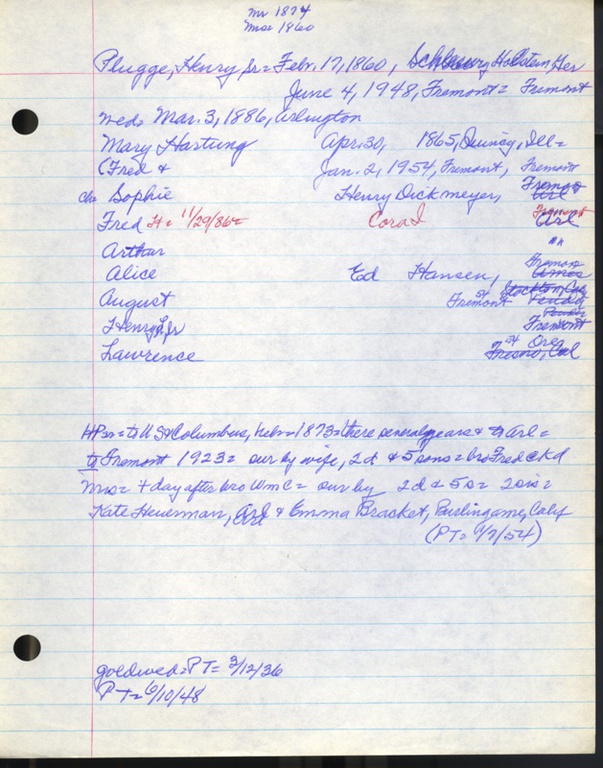 Mr 1874
Mrs 1860
Plugge, Henry Sr = Febr. 17, 1860, Holstein, Ger
June 4, 1948, Fremont = Fremont
wed = Mar. 3, 1886, Arlington
Mary Hartung Apr. 30, 1865, Quincy, Ill =
(Fred & Jan. 2, 1954, Fremont, Fremont
ch = Sophie Henry Dickmeyer, Fremont Arl
Fred H = 11/29/86 = Cora I Fremont Arl
Arthur " "
Alice Ed Hansen, Fremont Ames
August Fremont 54 Stockton, Cal
Henry, Jr Fremont
Lawrence 54 Ore Fresno, Cal
HP sr = to US & Columbus, Nebr = 1873 = there several years & to Arl =
to Fremont 1923 = sur by wife, 2d & 5 sons = bro Fred & Kd
Mrs = + day after bro Wm C = sur by 2d & 5s = 2sis =
Kate Heuerman, Arl & Emma Bracket, Burlingame, Calif
(PT = 1/7/54)
gold wed = PT = 3/12/36
PT = 6/10/48